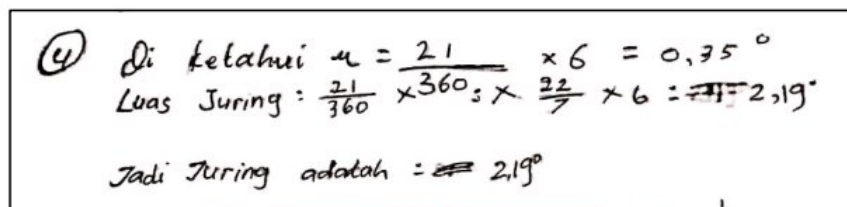 ④ Di ketahui u = 21/360 × 6 = 0,35°
Luas Juring : 21/360 × : × 22/7 × 6 = 2,19°
Jadi Juring adatah = 2,19°